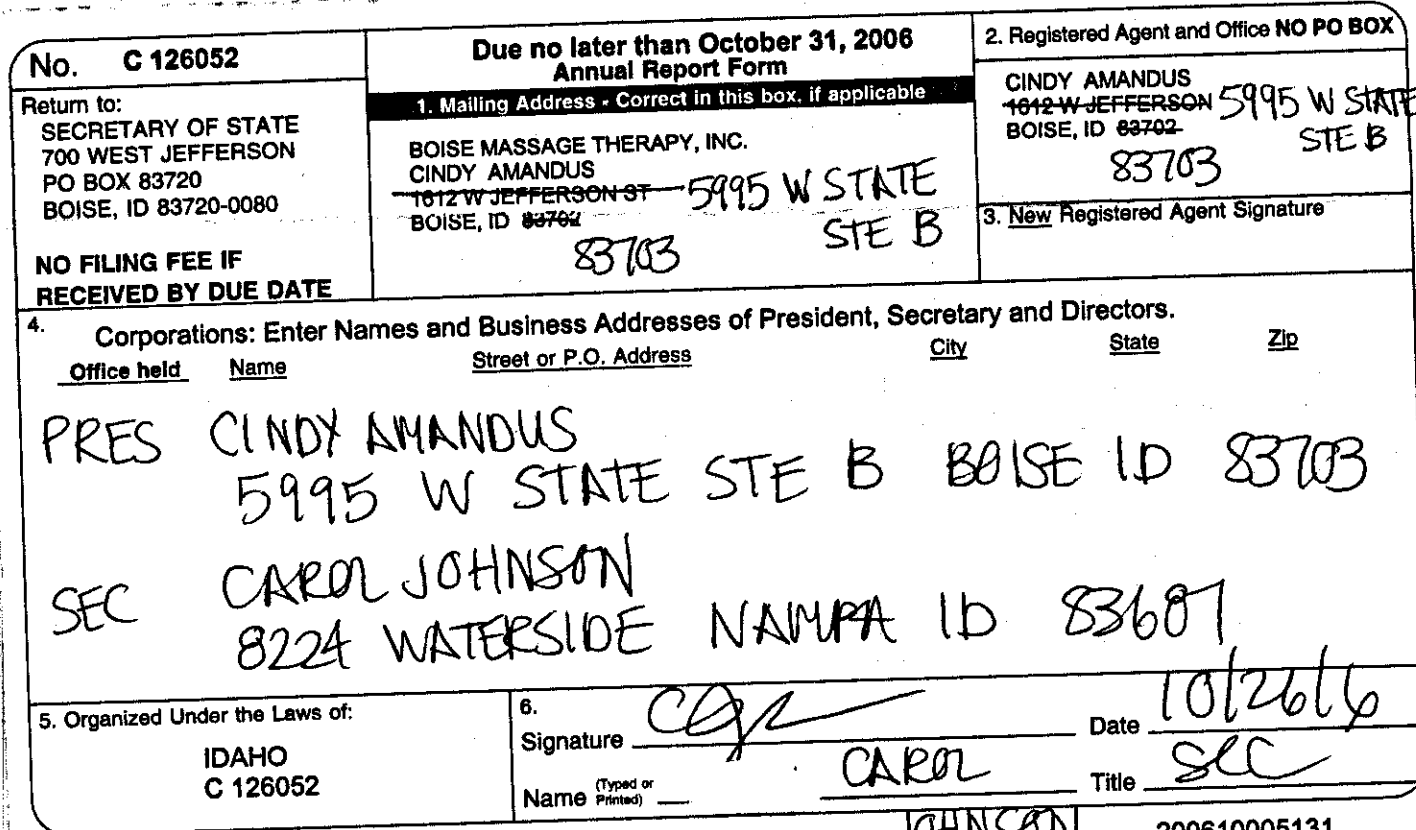 No. C 126052
Return to:
SECRETARY OF STATE
700 WEST JEFFERSON
PO BOX 83720
BOISE, ID 83720-0080
NO FILING FEE IF
RECEIVED BY DUE DATE
Due no later than October 31, 2006
Annual Report Form
1. Mailing Address - Correct in this box, if applicable
BOISE MASSAGE THERAPY, INC.
CINDY AMANDUS
1612 W JEFFERSON ST 5995 W STATE
BOISE, ID 83702 STE B
83703
2. Registered Agent and Office NO PO BOX
CINDY AMANDUS
1612 W JEFFERSON 5995 W STATE
BOISE, ID 83702 STE B
83703
3. New Registered Agent Signature
4. Corporations: Enter Names and Business Addresses of President, Secretary and Directors.
Office held Name Street or P.O. Address City State Zip
PRES CINDY AMANDUS
5995 W STATE STE B BOISE ID 83703
SEC CAROL JOHNSON
8224 WATERSIDE NAMPA ID 83687
5. Organized Under the Laws of:
IDAHO
C 126052
6.
Signature Date 10/26/6
Name (Typed or Printed) CAROL Title SEC
JOHNSON 200610005131